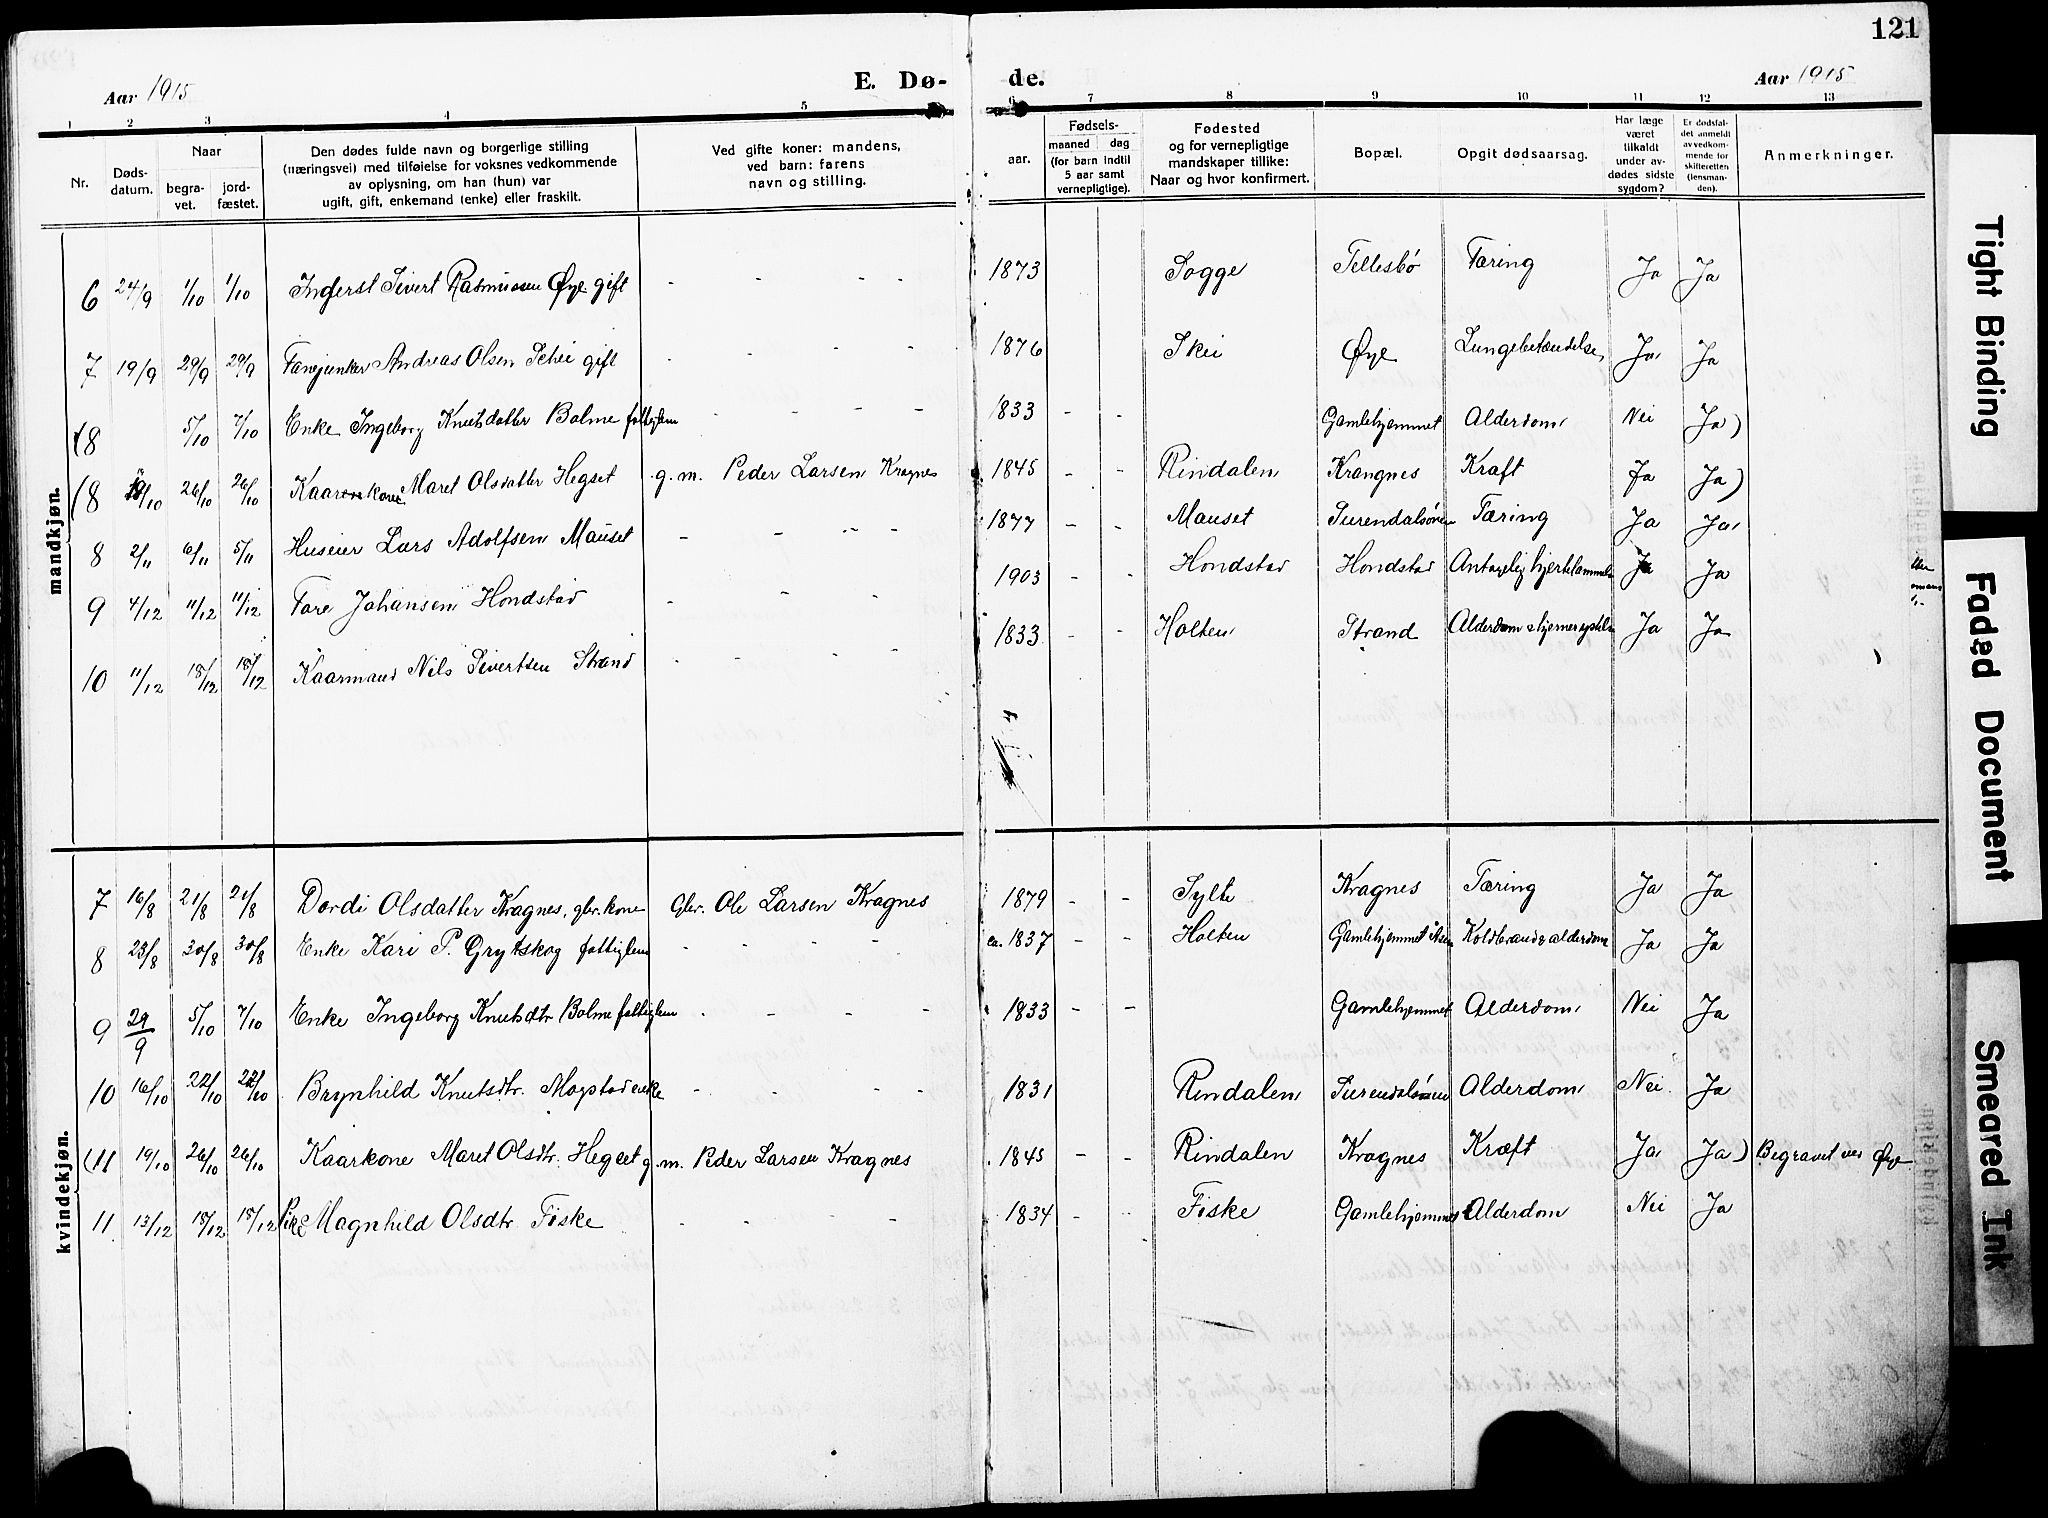 121
Aar 1915
E. Dø-
de.
Aar 1915
1 2 3 4 5 6 7 8 9 10 11 12 13
Nr.
Døds-
datum.
Naar
begra-
vet.
jord-
fæstet.
Den dødes fulde navn og borgerlige stilling
(næringsvei) med tilføielse for voksnes vedkommende
av oplysning, om han (hun) var
ugift, gift, enkemand (enke) eller fraskilt.
Ved gifte koner: mandens,
ved barn: farens
navn og stilling.
Fødsels-
aar.
maaned dag
(for barn indtil
5 aar samt
vernepligtige).
Fødested
og for vernepligtige
mandskaper tillike:
Naar og hvor konfirmert.
Bopæl.
Opgit dødsaarsag.
Har læge
været
tilkaldt
under av-
dødes sidste
sygdom?
Er dødsfal-
det anmeldt
av vedkom-
mende for
skifteretten
(lensman-
den).
Anmerkninger.
mandkjøn.
6 24/9 1/10 1/10 Sivert Rasmussen Øye gift - - - - 1873 Sogge Tellesbø Tæring Ja Ja
7 19/9 29/9 29/9 Fanejunker Andreas Olsen Schei gift - - - - 1876 Skei Øye Lungebetændelse Ja Ja
(8 5/10 7/10 Enke Ingeborg Knutsdatter Bolme fattiglem - - - - 1833 - - Gamlehjemmet Alderdom Nei Ja)
(8 19/10 26/10 26/10 Kaarkone Maret Olsdatter Hegset g.m. Peder Larsen Kragnes 1845 - - Rindalen Krangnes Kræft Ja Ja)
8 2/11 6/11 5/11 Huseier Lars Adolfsen Mauset - - - - 1877 - - Mauset Surendalsøren Tæring Ja Ja
9 4/12 11/12 11/12 Tore Johansen Hondstad - - - 1903 - - Hondstad Hondstad Antagelig hjertelammelse Ja Ja
10 11/12 18/12 18/12 Kaarmand Nils Sivertsen Strand - - - - 1833 - - Holten Strand Alderdom Ja Ja
kvindekjøn.
7 16/8 21/8 21/8 Dordi Olsdatter Kragnes, gbr. kone Gbr. Ole Larsen Kragnes 1879 - - Sylte Kragnes Tæring Ja Ja
8 23/8 30/8 30/8 Enke Kari P. Grytskog fattiglem - - - - ca. 1837 - - Holten Gamlehjemmet Koldbrand & alderdom Ja Ja
9 29/9 5/10 7/10 Enke Ingeborg Knutsdtr Bolme fattiglem - - - - 1833 - - Gamlehjemmet Alderdom Nei Ja
10 16/10 22/10 22/10 Brynhild Knutsdtr. Mogstad enke - - - - 1831 Rindalen Surendalsøren Alderdom Nei Ja
(11 19/10 26/10 26/10 Kaarkone Maret Olsdtr. Hegset g.m. Peder Larsen Kragnes 1845 - - Rindalen Kragnes Kræft Ja Ja) Begravet ved Øye
11 13/12 18/12 18/12 Pike Magnhild Olsdtr. Fiske - - - - 1834 - - Fiske Gamlehjemmet Alderdom Nei Ja
Tight Binding
Faded Document
Smeared Ink